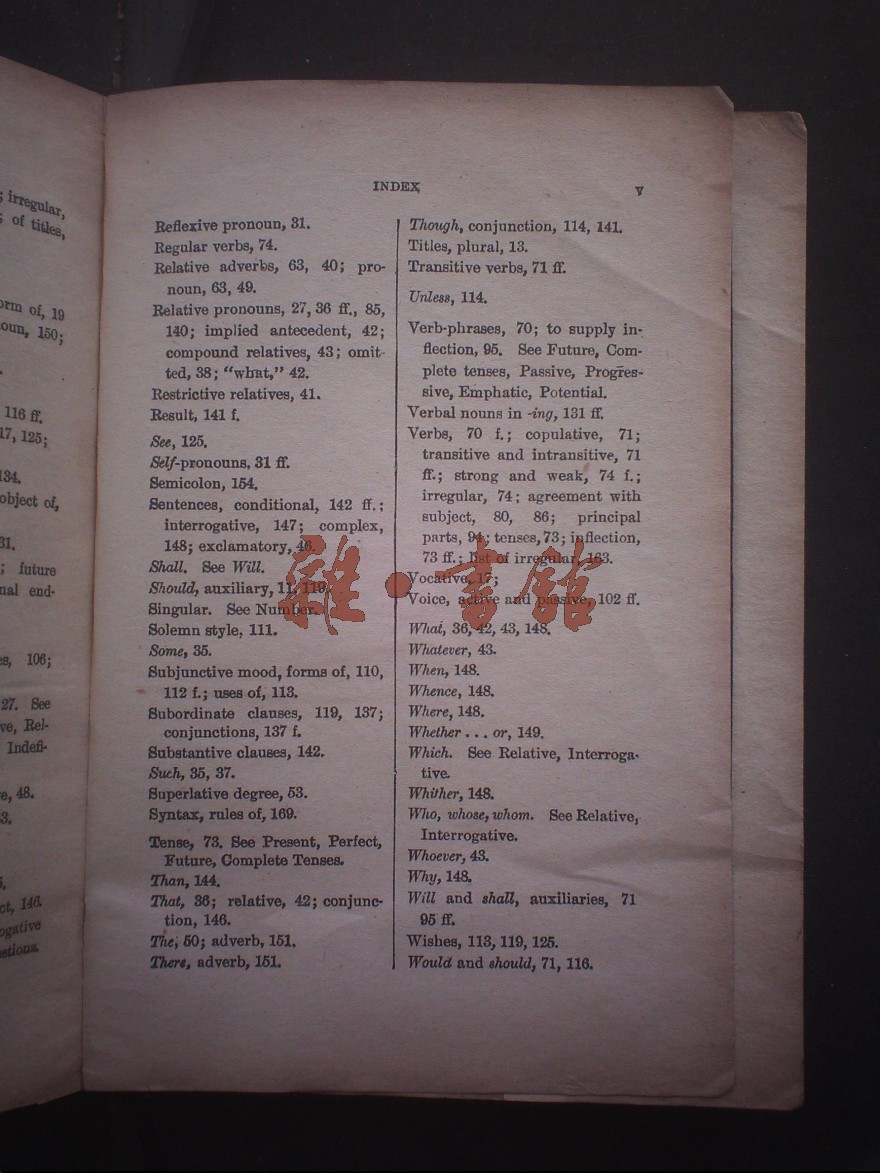 ; irregular,
; of titles,
orm of, 19
oun, 150;
116 ff.
17, 125;
134.
object of,
31.
; future
nal end-
es, 106;
27. See
ve, Rel-
Indefi-
e, 48.
3.
ct, 146.
ogative
estions.
INDEX
V
Reflexive pronoun, 31.
Regular verbs, 74.
Relative adverbs, 63, 40; pro-
noun, 63, 49.
Relative pronouns, 27, 36 ff., 85,
140; implied antecedent, 42;
compound relatives, 43; omit-
ted, 38; “what,” 42.
Restrictive relatives, 41.
Result, 141 f.
See, 125.
Self-pronouns, 31 ff.
Semicolon, 154.
Sentences, conditional, 142 ff.;
interrogative, 147; complex,
148; exclamatory, 46.
Shall. See Will.
Should, auxiliary, 11, 119.
Singular. See Number.
Solemn style, 111.
Some, 35.
Subjunctive mood, forms of, 110,
112 f.; uses of, 113.
Subordinate clauses, 119, 137;
conjunctions, 137 f.
Substantive clauses, 142.
Such, 35, 37.
Superlative degree, 53.
Syntax, rules of, 169.
Tense, 73. See Present, Perfect,
Future, Complete Tenses.
Than, 144.
That, 36; relative, 42; conjunc-
tion, 146.
The, 50; adverb, 151.
There, adverb, 151.
Though, conjunction, 114, 141.
Titles, plural, 13.
Transitive verbs, 71 ff.
Unless, 114.
Verb-phrases, 70; to supply in-
flection, 95. See Future, Com-
plete tenses, Passive, Progres-
sive, Emphatic, Potential.
Verbal nouns in -ing, 131 ff.
Verbs, 70 f.; copulative, 71;
transitive and intransitive, 71
ff.; strong and weak, 74 f.;
irregular, 74; agreement with
subject, 80, 86; principal
parts, 94; tenses, 73; inflection,
73 ff.; list of irregular, 163.
Vocative, 17;
Voice, active and passive, 102 ff.
What, 36, 42, 43, 148.
Whatever, 43.
When, 148.
Whence, 148.
Where, 148.
Whether . . . or, 149.
Which. See Relative, Interroga-
tive.
Whither, 148.
Who, whose, whom. See Relative,
Interrogative.
Whoever, 43.
Why, 148.
Will and shall, auxiliaries, 71
95 ff.
Wishes, 113, 119, 125.
Would and should, 71, 116.
雜·書館